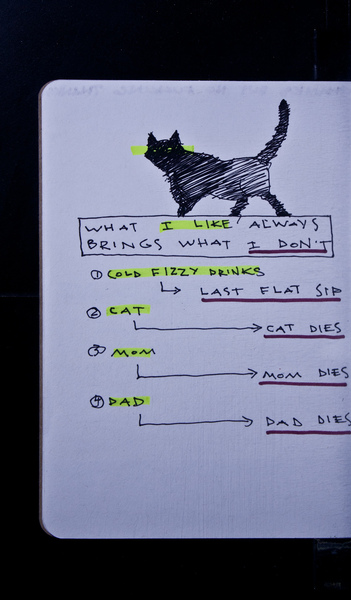 WHAT I LIKE ALWAYS
BRINGS WHAT I DON'T
① COLD FIZZY DRINKS
LAST FLAT SIP
② CAT
CAT DIES
③ MOM
MOM DIES
④ DAD
DAD DIES